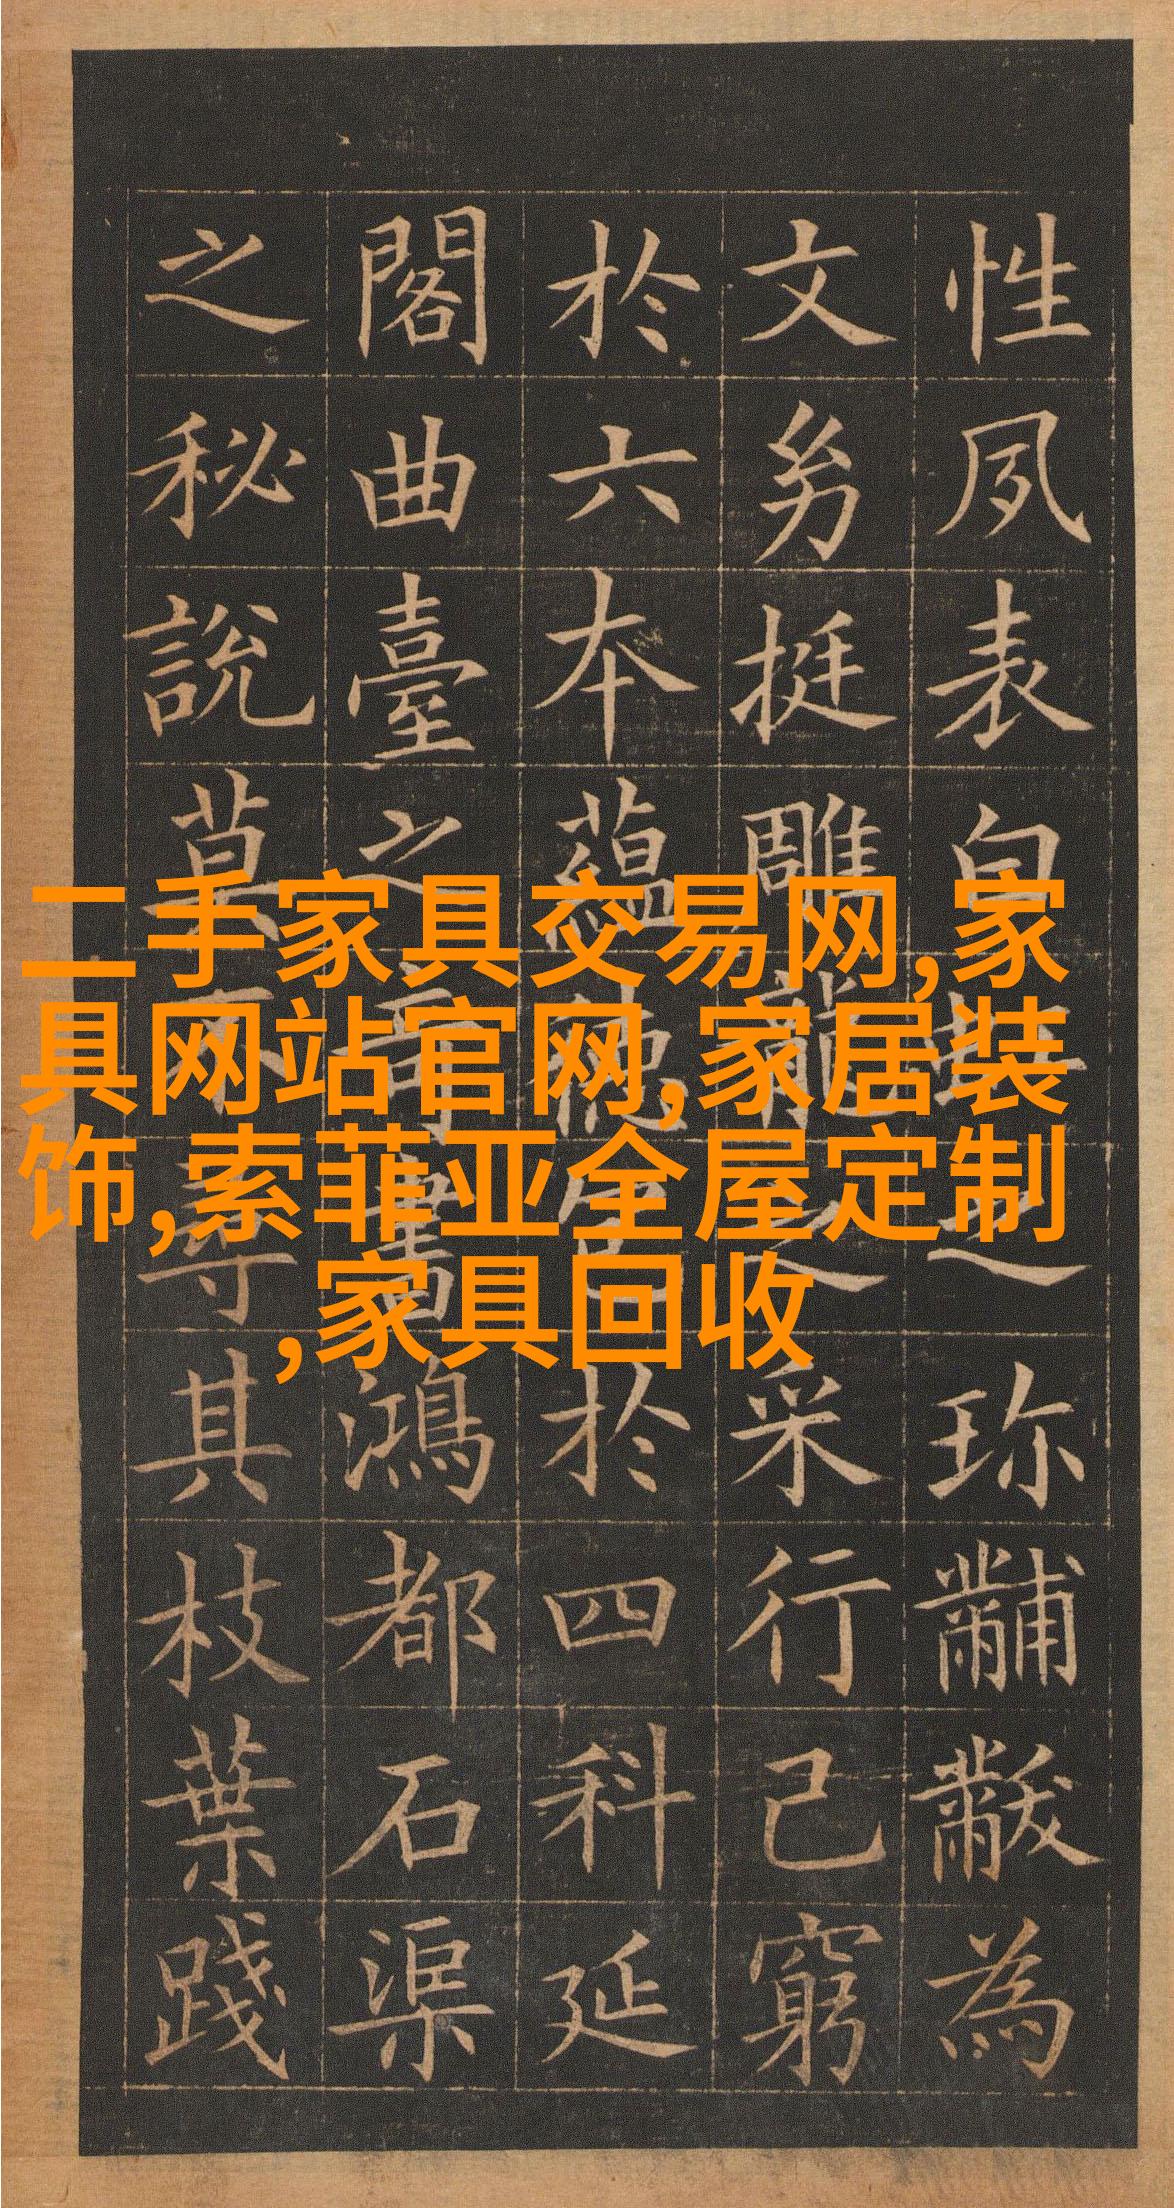 性夙表自之珍黼黻為
文挺雕龍之采行己窮
於六本蘊於四科延
閣曲臺之書鴻都石渠
之秘說莫不尋其枝葉踐
二手家具交易网,家
具网站官网,家居装
饰,索菲亚全屋定制
,家具回收